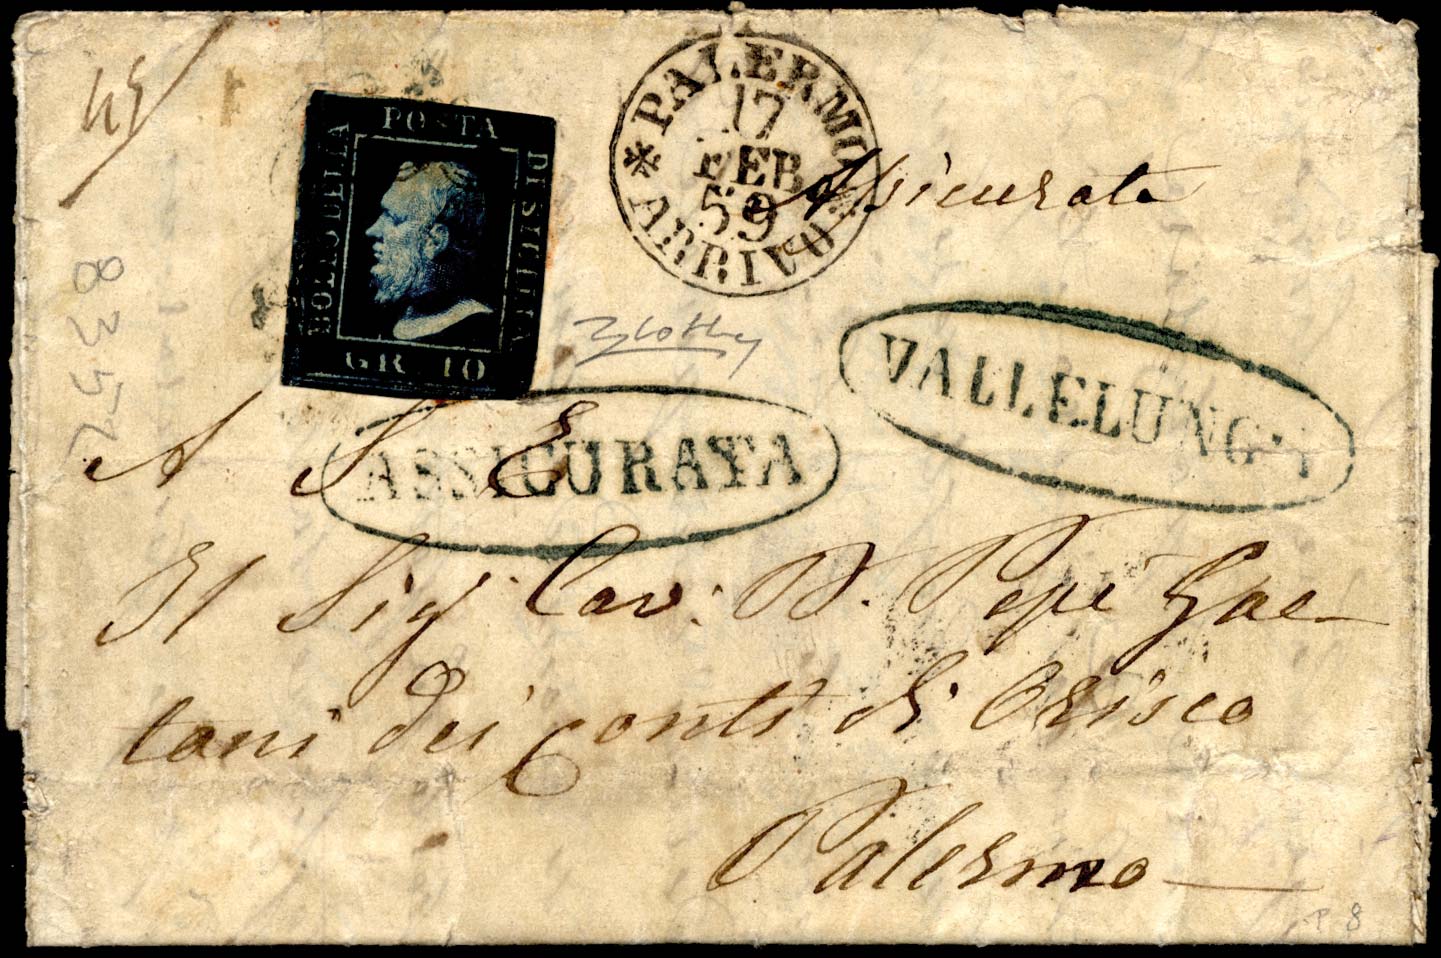 45
BOLLO DELLA
POSTA
DI SICILIA
GR 10
PALERMO
17
FEB
59
ARRIVO
Assicurata
8352
VALLELUNGA
ASSICURATA
A S E
Il Sig Cav: D. Pepè Gae
tani dei Conti di Orisco
Palermo
P 8